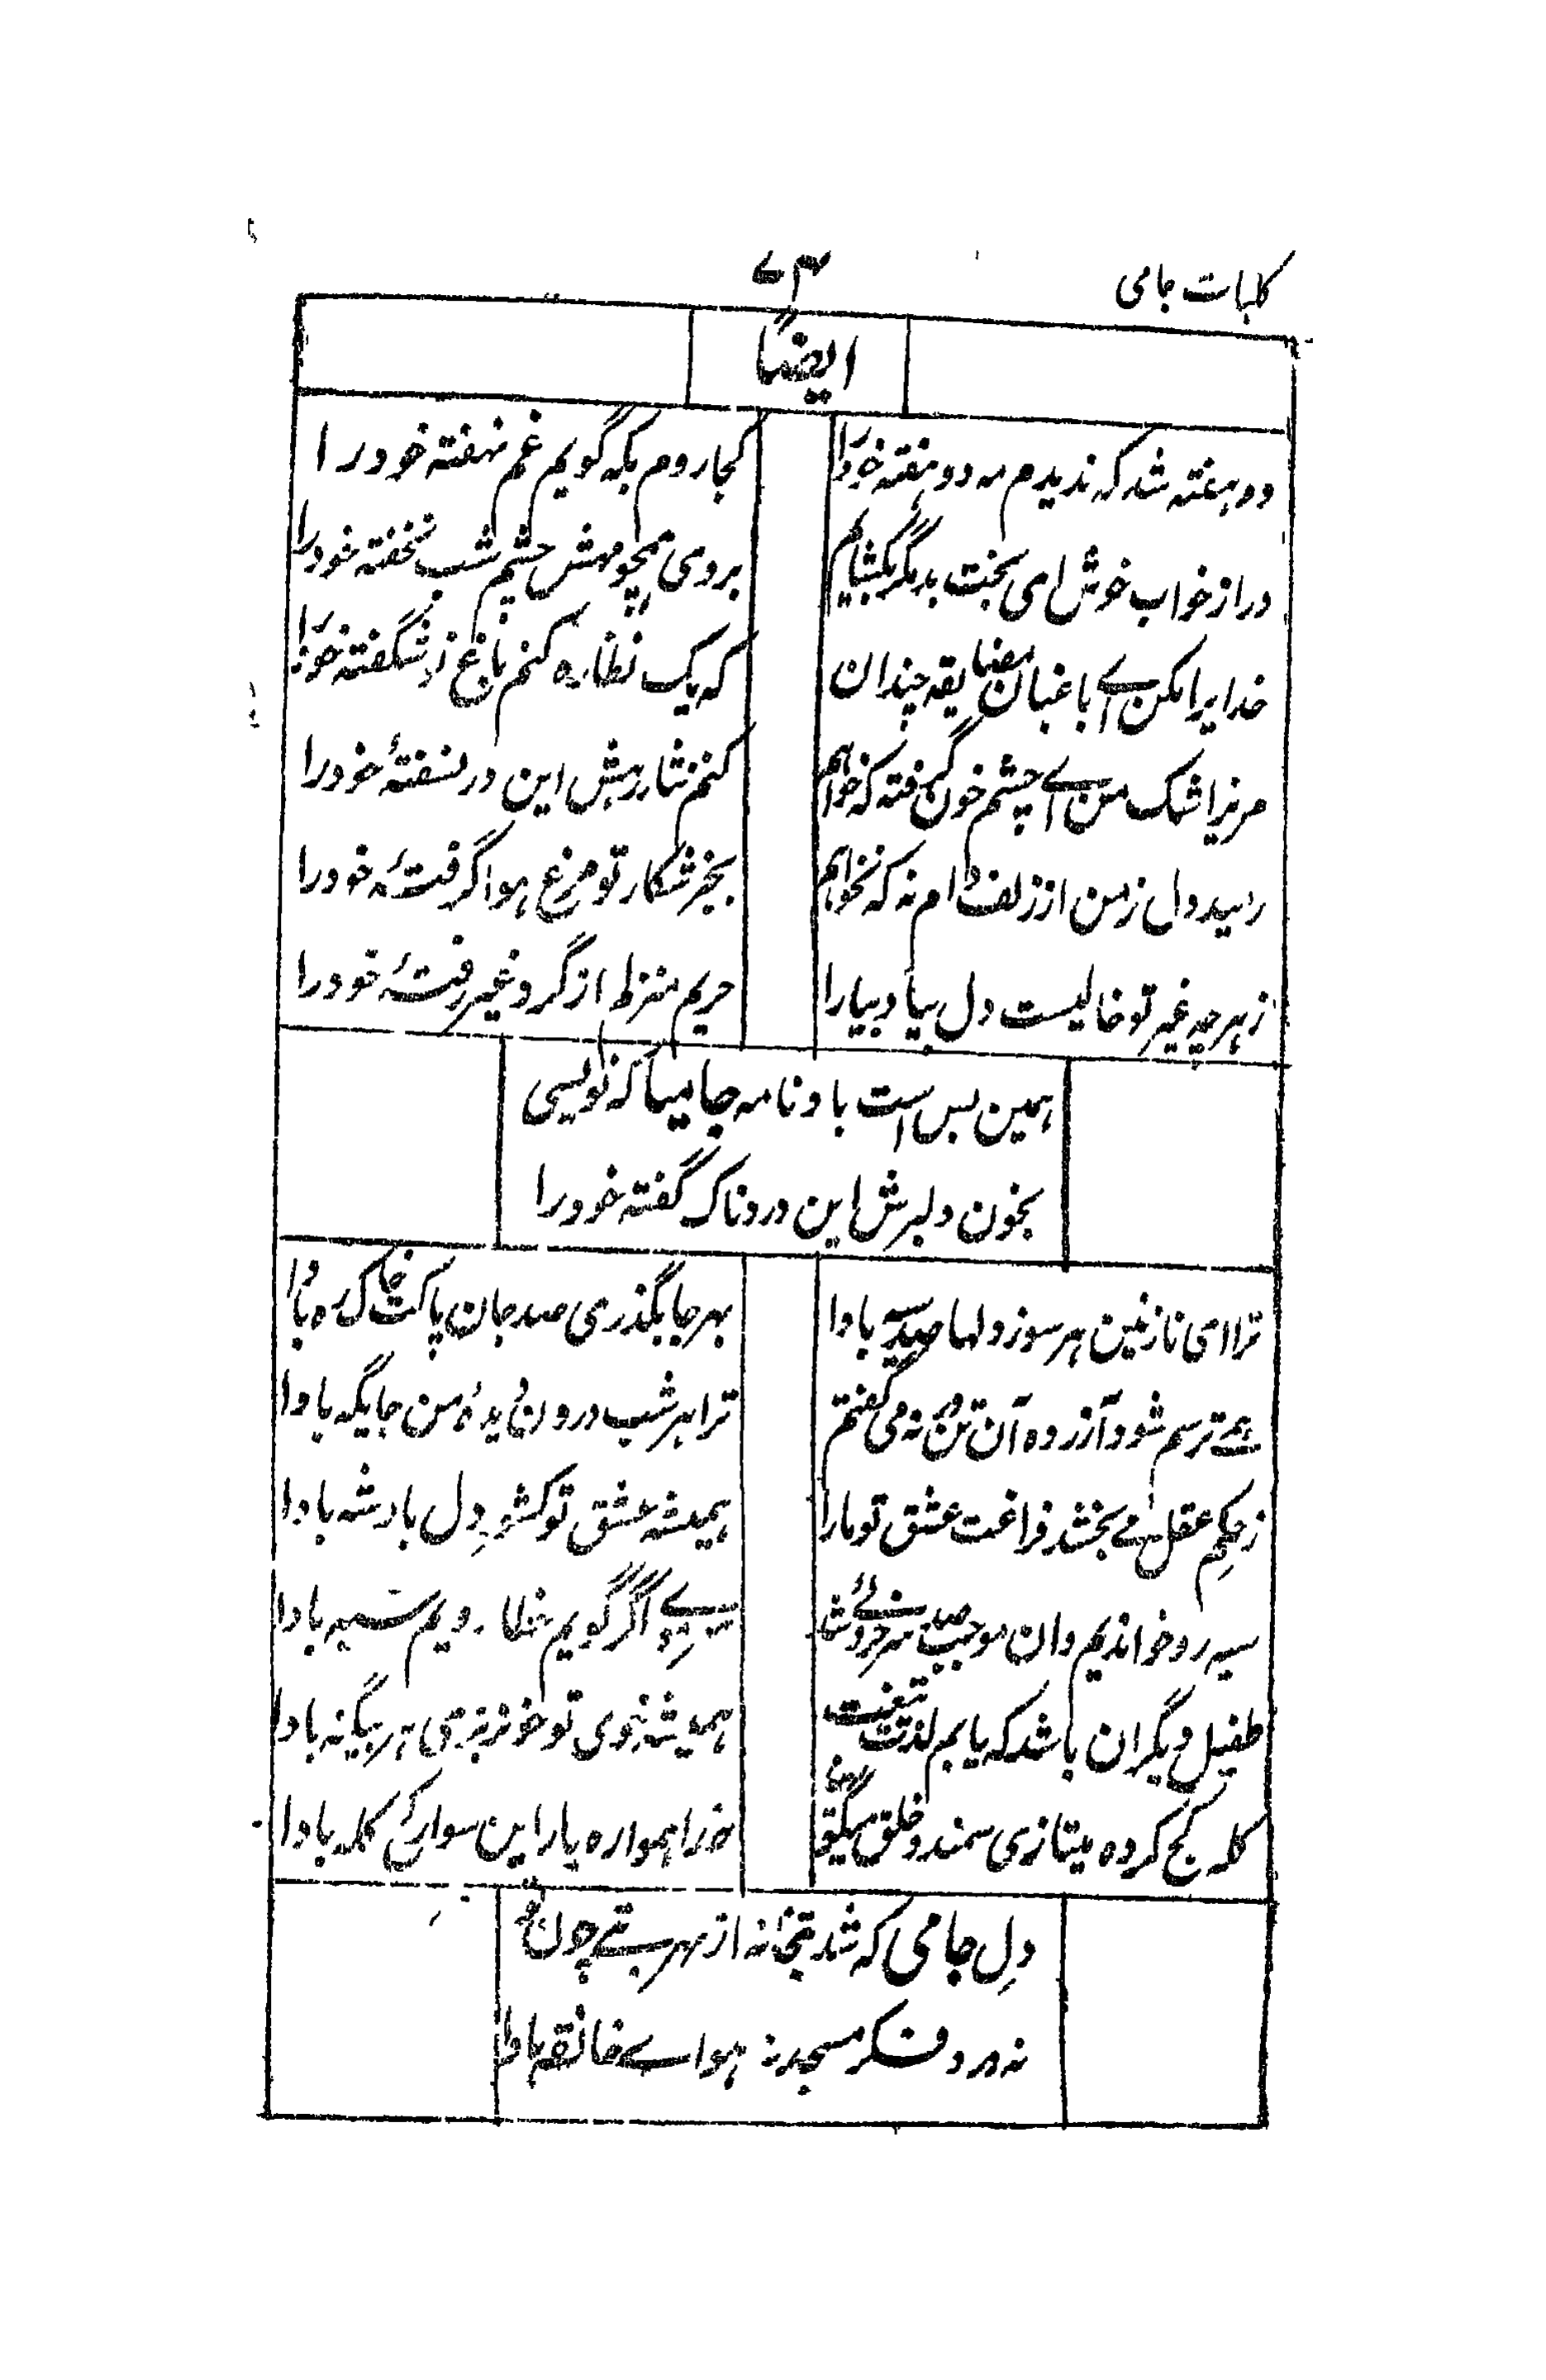 کلیات جامی
۷۳
ایضاً
دو هفته شد که ندیدم مه دو هفته خود را
کجا روم بکه گویم غم نهفته خود را
درا ز خواب خوش ای بخت بد مگر بکشایم
بروی همچو مهش چشم شب نخفته خود را
خدایرا مکن اے باغبان مضایقه چندان
که یک نظاره کنم باغ نو شگفته خود را
مریز اشک من اے چشم خون گرفته که خواهم
کنم نثار رهش این در نسفتهٔ خود را
رمید دل ز من از زلف دام نه که نخواهم
بجز شکار تو مرغ هوا گرفتهٔ خود را
ز هرچه غیر تو خالیست دل بیا و بیارا
حریم منزل از گرد غیر رفتهٔ خود را
همین بس است باو نامه جامیا که نویسی
بخون دلبرش این دردناک گفته خود را
ترا ای نازنین هر سو ز دلها صید سپه بادا
بهر جا بگذری صد جان پاکت خاک ره بادا
همے ترسم شود آزرده آن تن ورنه می گفتم
ترا هر شب درون دیدهٔ من جایگه بادا
ز حکم عقل مے بخشد فراغت عشق تو ما را
همیشه عشق تو کشورِ دل بادشه بادا
سیه رو خواندیم وان موجب صد سرخروئی شد
اگر گویم خطا رویم سیه بادا
طفیل دیگران باشد که یابم لذت تیغت
همیشه خوی تو خونریزی هر بیگنه بادا
کله کج کرده میتازی سمند و خلق میگوید
خدا همواره یار این سوار کج کله بادا
دلِ جامی که شد بتخانه از مهر بتے چون تو
نه در وے فکر مسجد نه هواے خانقه بادا